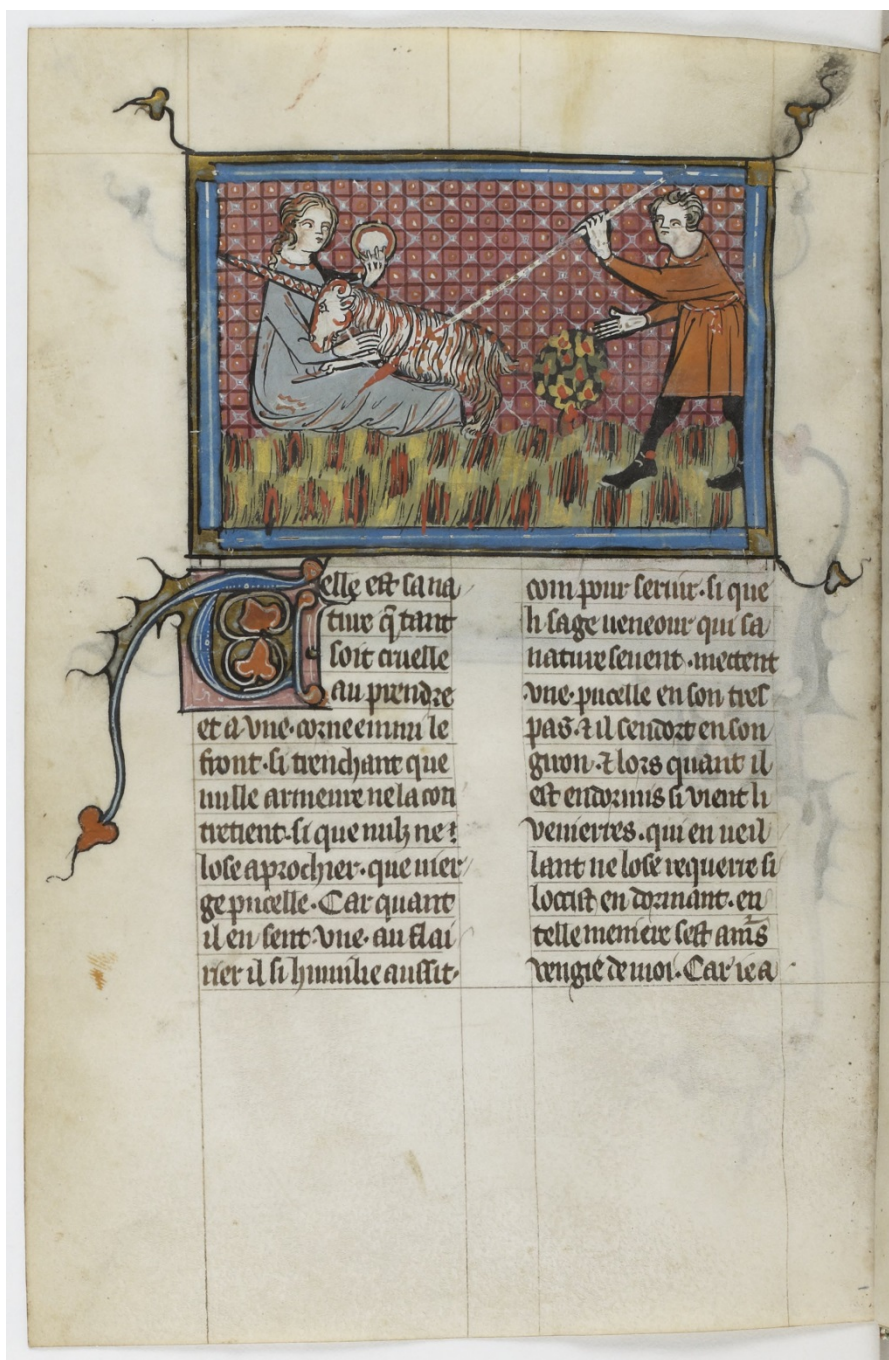 Telle est sa na
ture q̃ tant
soit cruelle
au prendre
et a vne·corne enmi le
front·si trenchant que
nulle armeure ne la con
tretient·si que nulz ne
lose aprochier·que vier
ge pucelle·Car quant
il en sent·vne·au flai
rier il si humilie aussit·
com pour seruir·si que
li sage ueneour qui sa
nature seuent·mectent
vne·pucelle en son tres
pas·⁊ il sendort en son
giron·⁊ lors quant il
est endormis si vient li
venierres·qui en ueil
lant ne lose requerre si
locist en dormant·en
telle meniere sest am̃s
vengie de moi·Car ie a